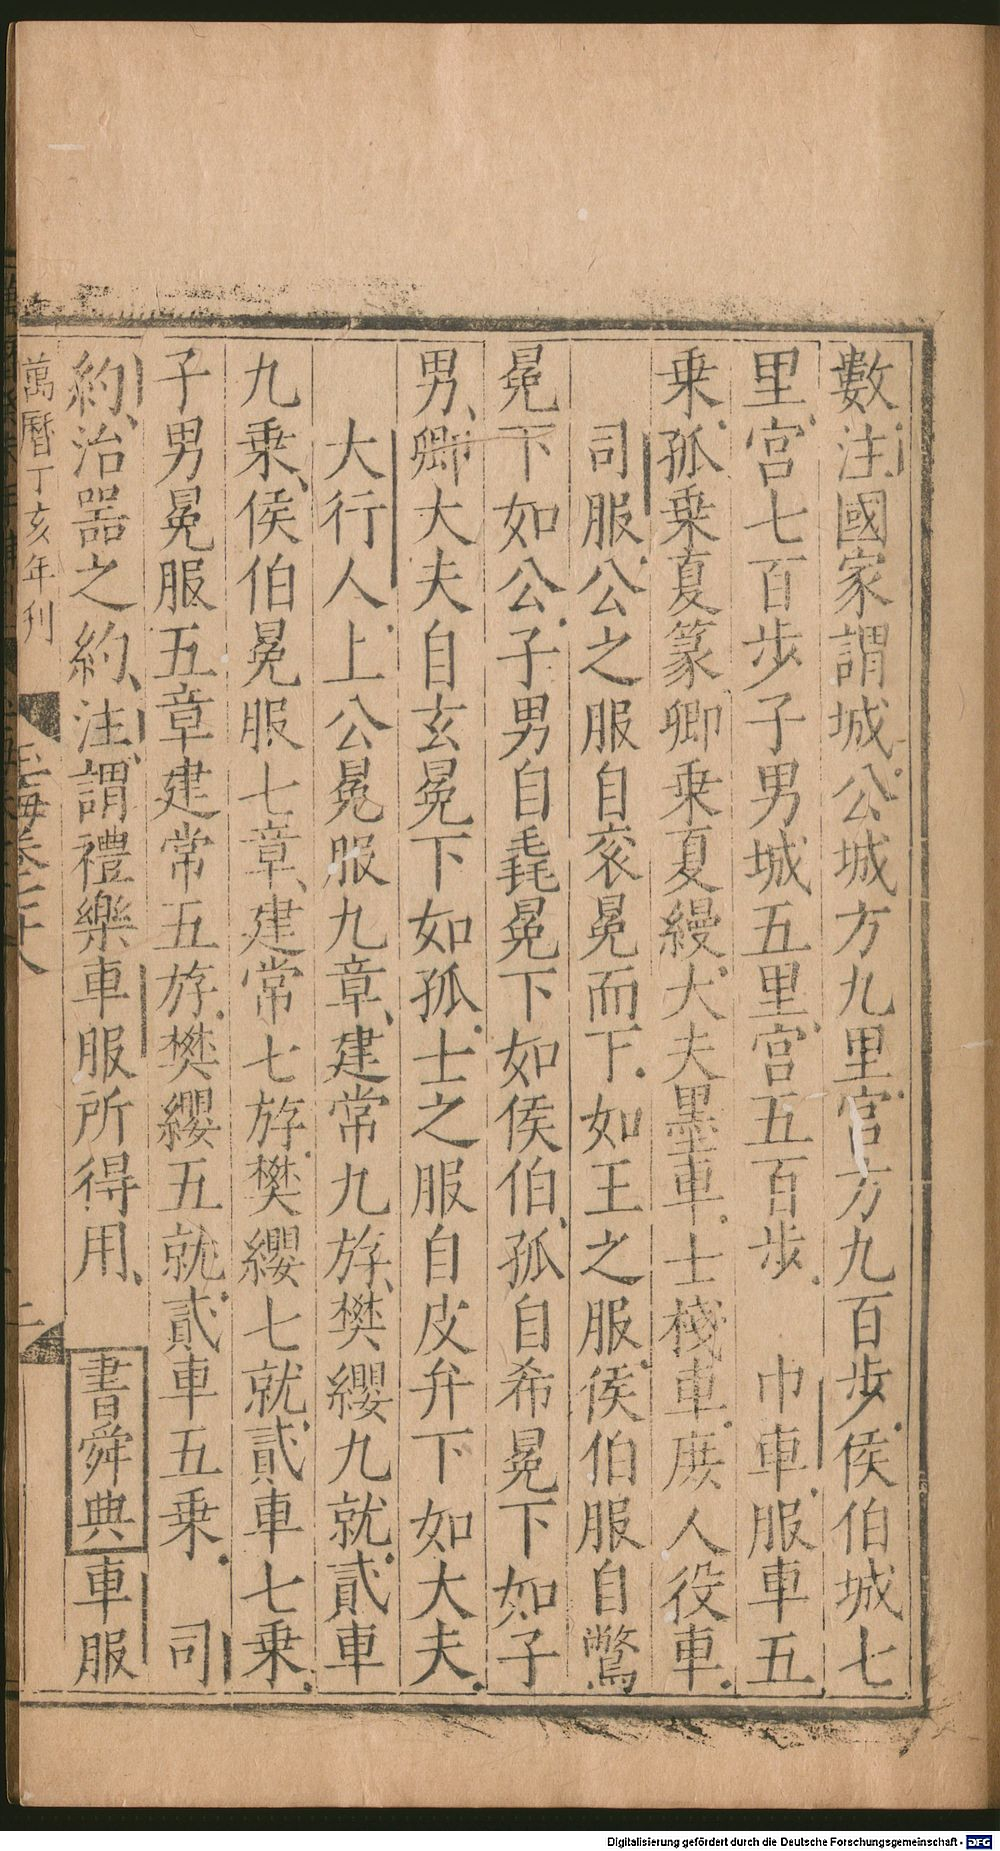 數注國家謂城公城方九里宫方九百步侯伯城七
里宫七百步子男城五里宫五百步　巾車服車五
乗孤乗夏篆卿乗夏縵大夫墨車士棧車庻人役車
司服公之服自衮冕而下如王之服侯伯服自鷩
冕下如公子男自毳冕下如侯伯孤自希冕下如子
男卿大夫自玄冕下如孤士之服自皮弁下如大夫
大行人上公冕服九章建常九斿樊纓九就貳車
九乗侯伯冕服七章建常七斿樊纓七就貳車七乗
子男冕服五章建常五斿樊纓五就貳車五乗　司
約治器之約注謂禮樂車服所得用　書舜典車服
萬曆丁亥年刊　玉海卷七十八　二
Digitalisierung gefördert durch die Deutsche Forschungsgemeinschaft - DFG